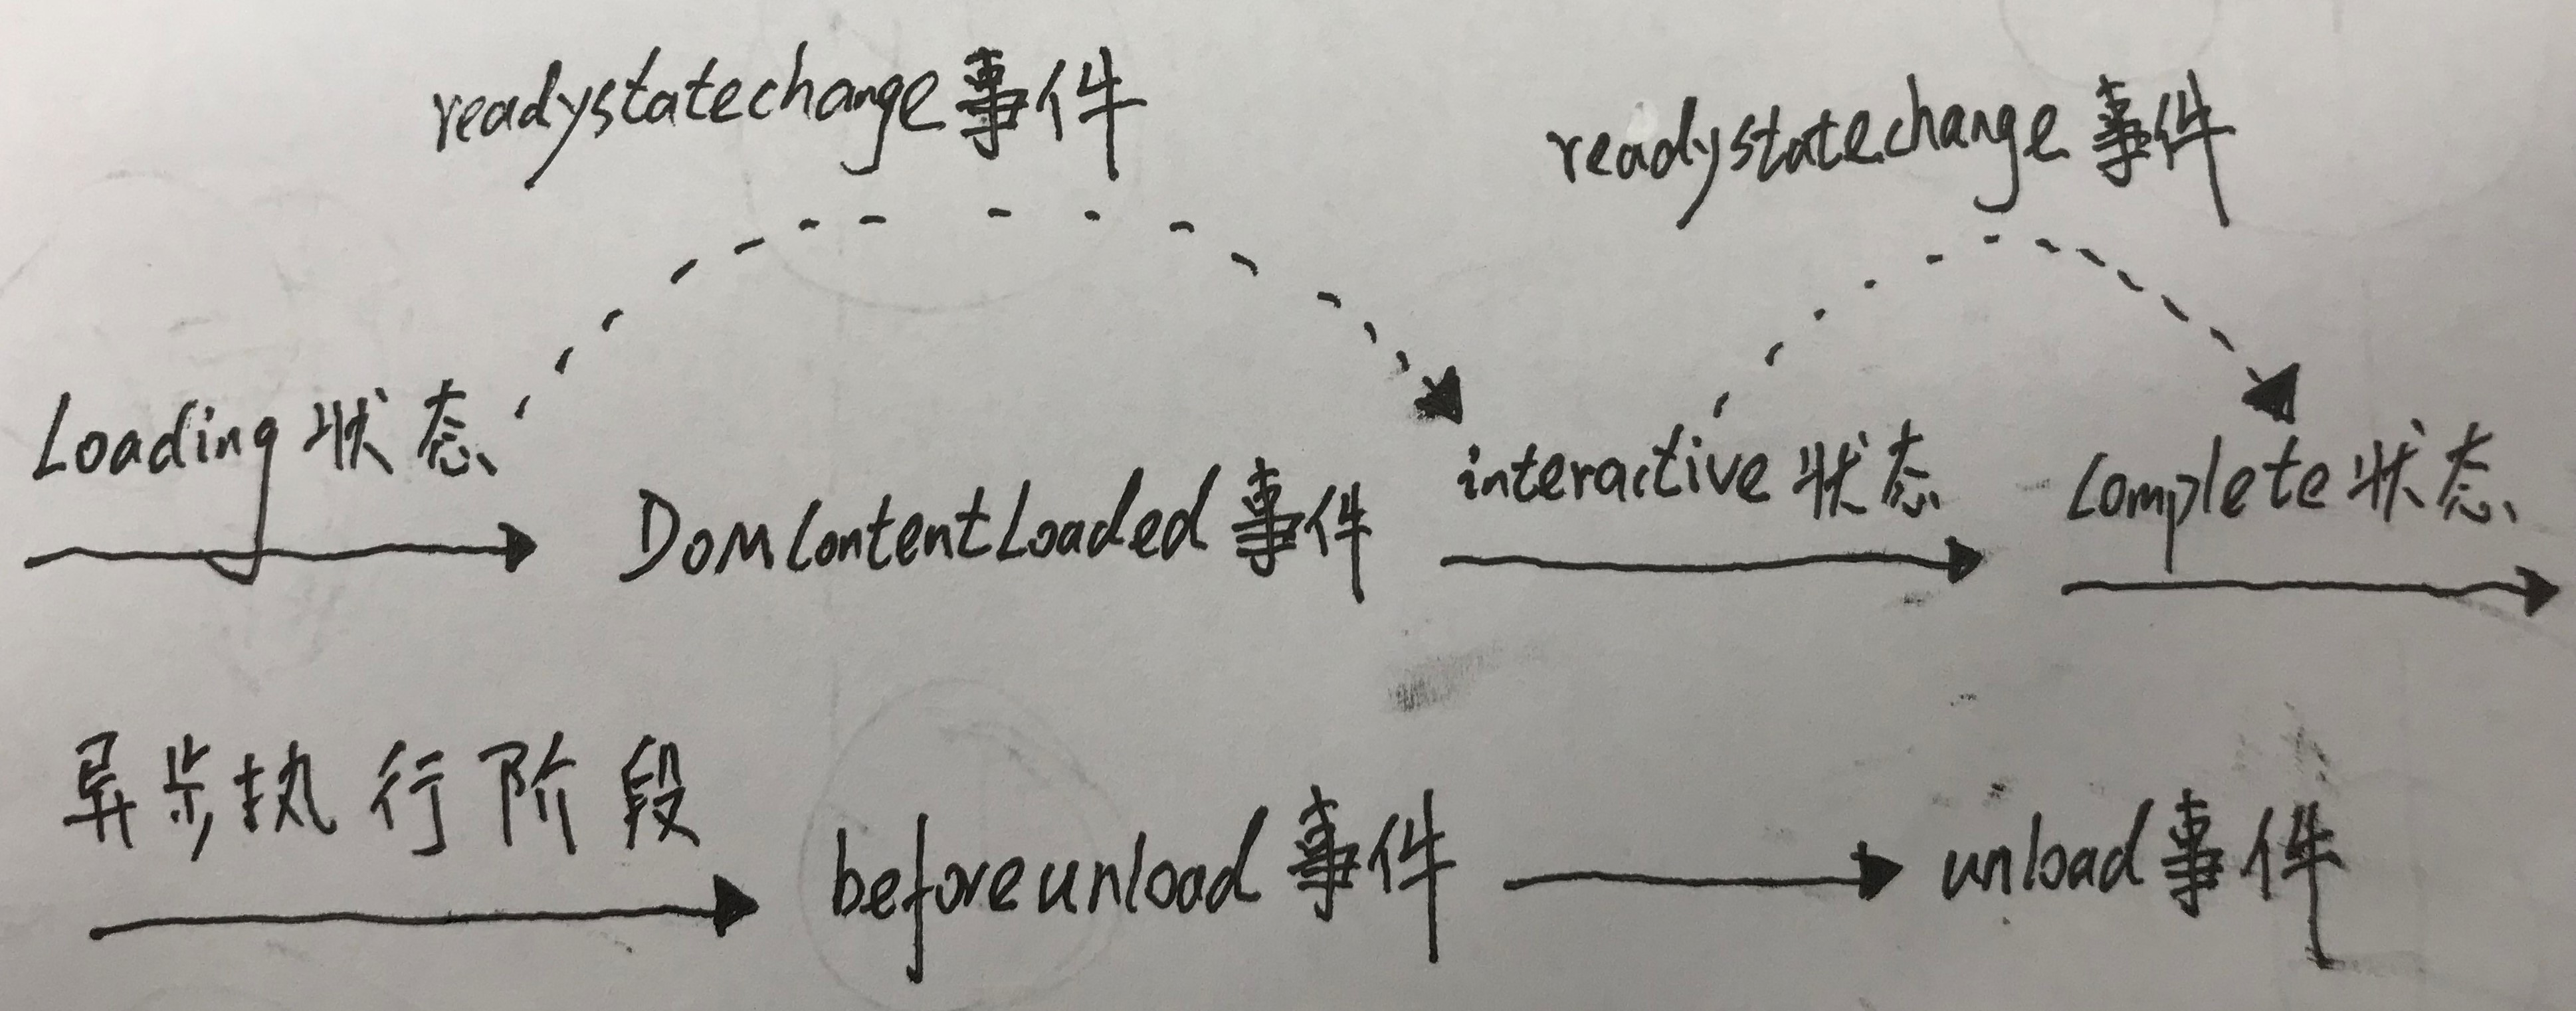 readystatechange事件 readystatechange事件
Loading状态 DOMContentLoaded事件 interactive状态 complete状态
异步执行阶段 beforeunload事件 unload事件